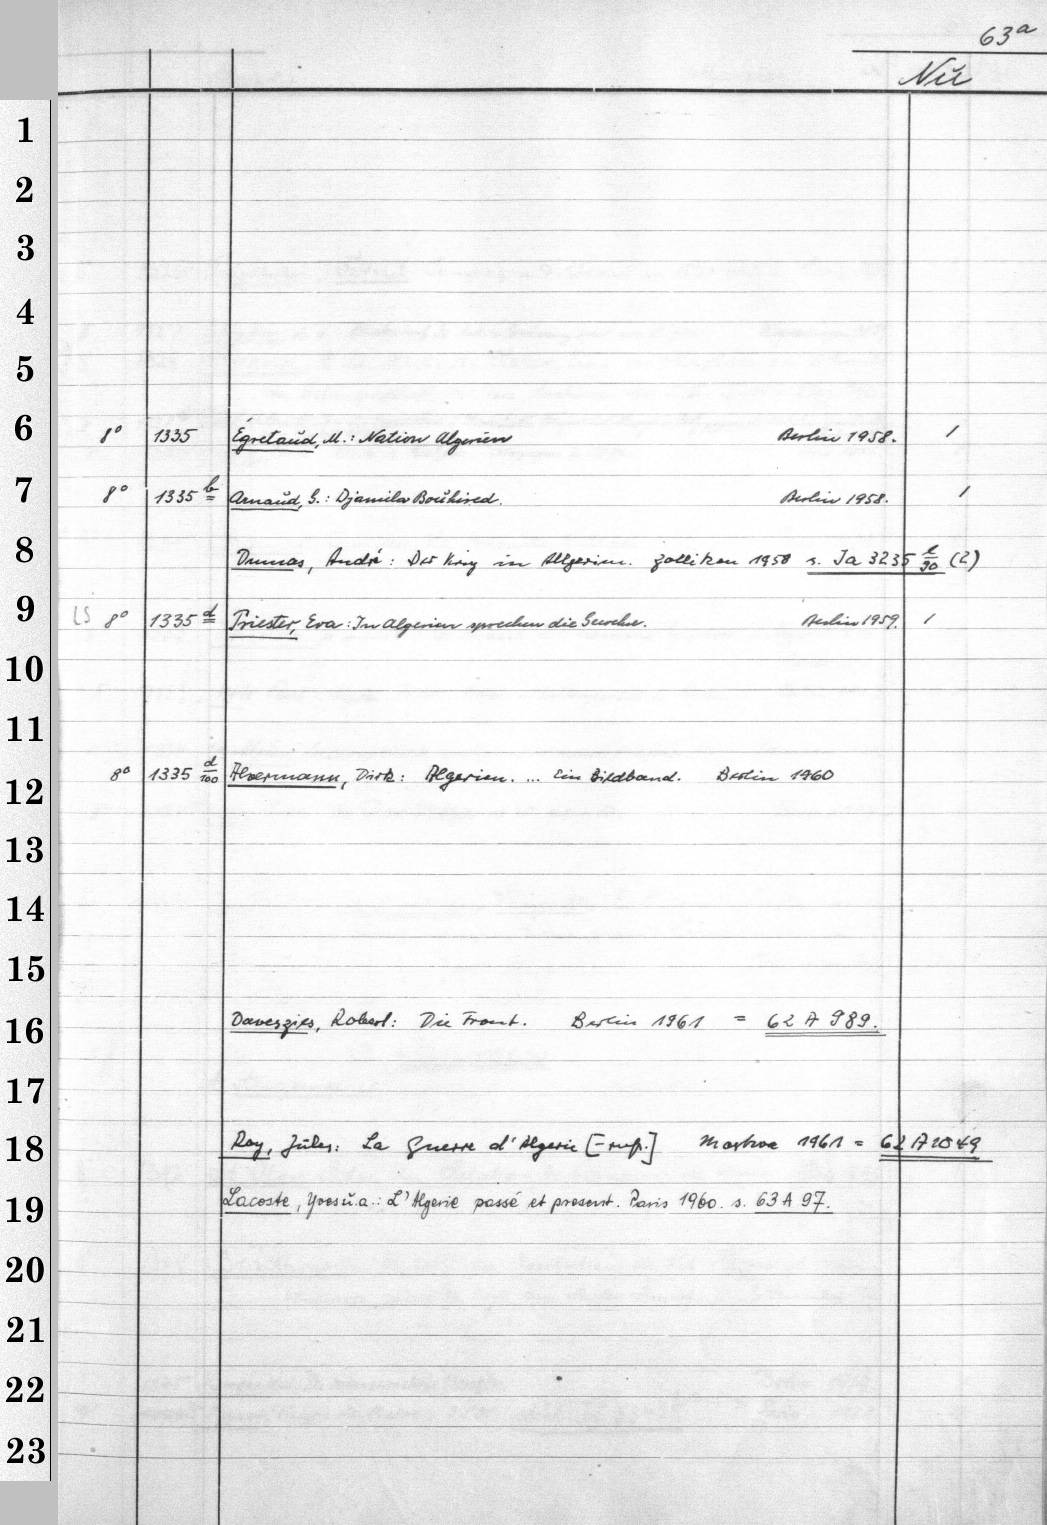 63a
Nu
1
2
3
4
5
6 8° 1335 Égretaŭd, M.: Nation Algerien Berlin 1958. 1
7 8° 1335 b Arnaŭd, G.: Djamila Boŭhired. Berlin 1958. 1
8 Dumas, André: Der Krieg in Algerien. Zollikon 1958 s. Ja 3235 l/90 (2)
9 LS 8° 1335 d Priester, Eva: In Algerien sprechen die Gewehre. Berlin 1959. 1
10
11
12 8° 1335 d/100 Alvermann, Dirk: Algerien. ... Ein Bildband. Berlin 1960
13
14
15
16 Davezies, Robert: Die Front. Berlin 1961 = 62 A 989.
17
18 Roy, Jŭles: La Guerre d'Algerie Moskva 1961 = 62 A 1049
19 Lacoste, Yves ŭ.a.: L'Algerie passé et present. Paris 1960. s. 63 A 97.
20
21
22
23